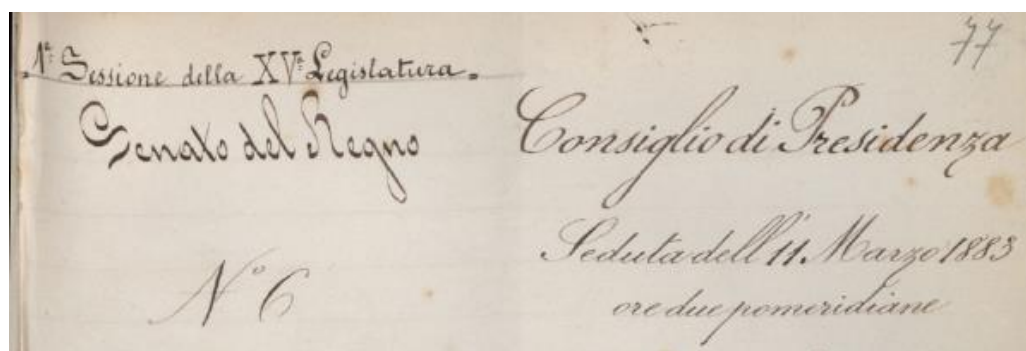 77
1ª Sessione della XVª Legislatura.
Senato del Regno
Nº 6
Consiglio di Presidenza
Seduta dell'11. Marzo 1883
ore due pomeridiane